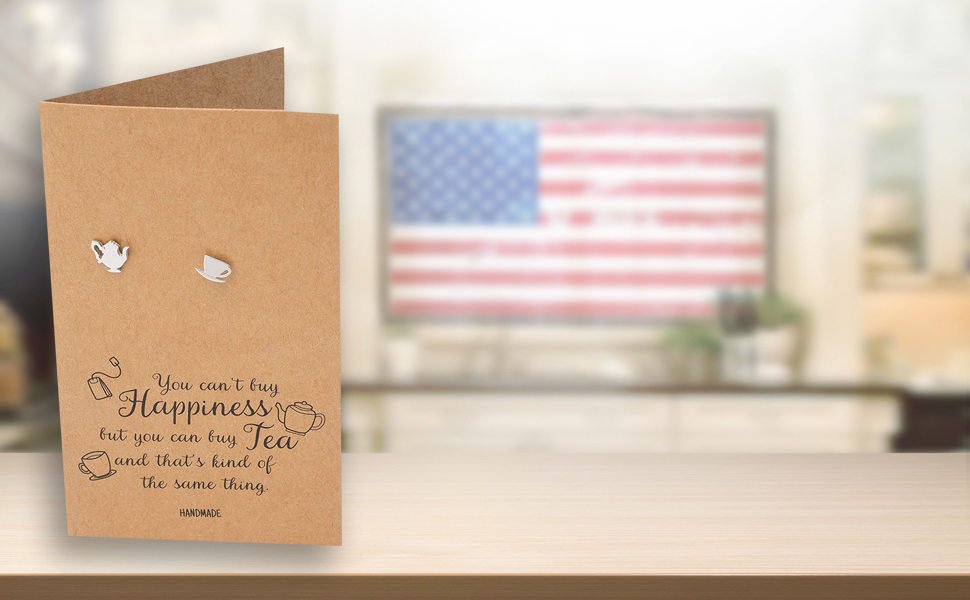 You can't buy
Happiness
but you can buy Tea
and that's kind of
the same thing.
HANDMADE